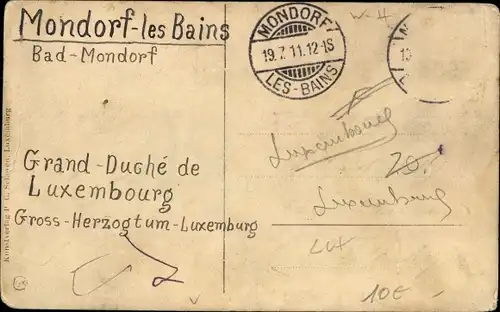 Mondorf-les Bains
Bad-Mondorf
Grand-Duché de
Luxembourg
Gross-Herzogtum-Luxemburg
MONDORF
19.7.11.12-1S
LES-BAINS
Luxembourg
20.
Luxemburg
Lux
10€
Kunstverlag P. C. Schoren, Luxemburg